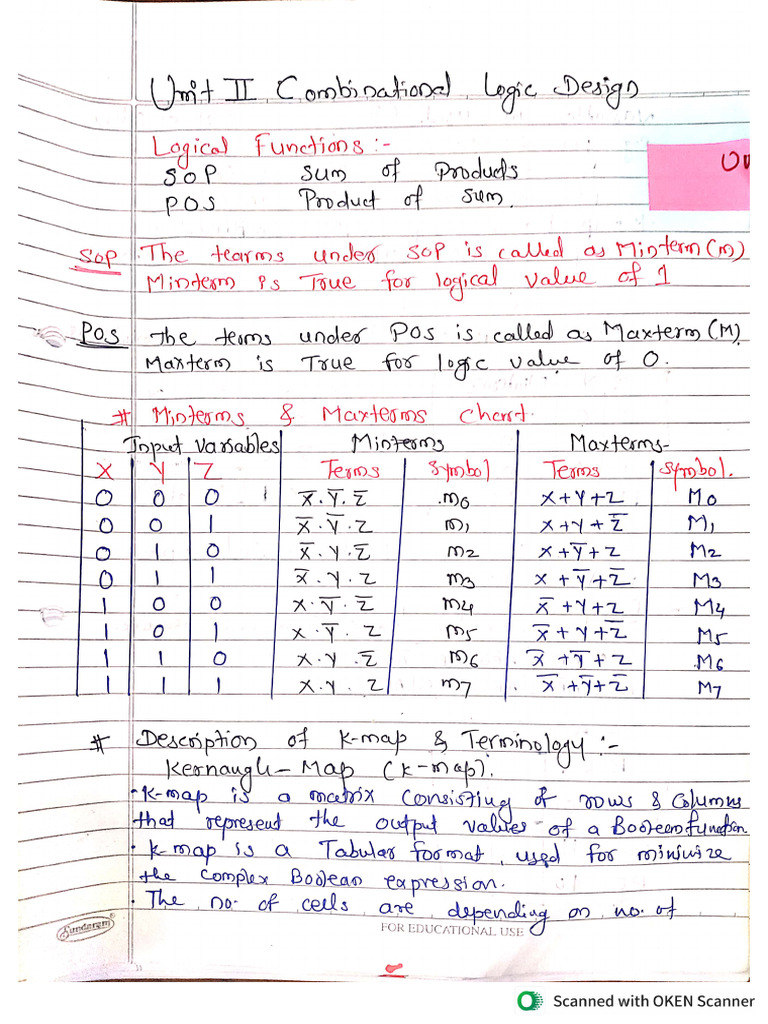 Unit II Combinational Logic Design
Logical Functions :-
SOP Sum of Products
POS Product of Sum.
SOP The tearms under SOP is called as Minterm (m)
Minterm is True for logical value of 1
POS The terms under POS is called as Maxterm (M)
Maxterm is True for logic value of 0.
# Minterms & Maxterms Chart.
Input Variables Minterms Maxterms-
X Y Z Terms Symbol Terms Symbol.
0 0 0 X̅.Y̅.Z̅ m0 X+Y+Z M0
0 0 1 X̅.Y̅.Z m1 X+Y+Z̅ M1
0 1 0 X̅.Y.Z̅ m2 X+Y̅+Z M2
0 1 1 X̅.Y.Z m3 X+Y̅+Z̅ M3
1 0 0 X.Y̅.Z̅ m4 X̅+Y+Z M4
1 0 1 X.Y̅.Z m5 X̅+Y+Z̅ M5
1 1 0 X.Y.Z̅ m6 X̅+Y̅+Z M6
1 1 1 X.Y.Z m7 X̅+Y̅+Z̅ M7
# Description of K-map & Terminology :-
Kernaugh-Map (K-map).
• K-map is a matrix consisting of rows & Columns
that represent the output values of a Boolean function
• K map is a Tabular format, used for minimize
the Complex Boolean expression.
• The no. of cells are depending on no. of
Sundaram®
FOR EDUCATIONAL USE
Scanned with OKEN Scanner